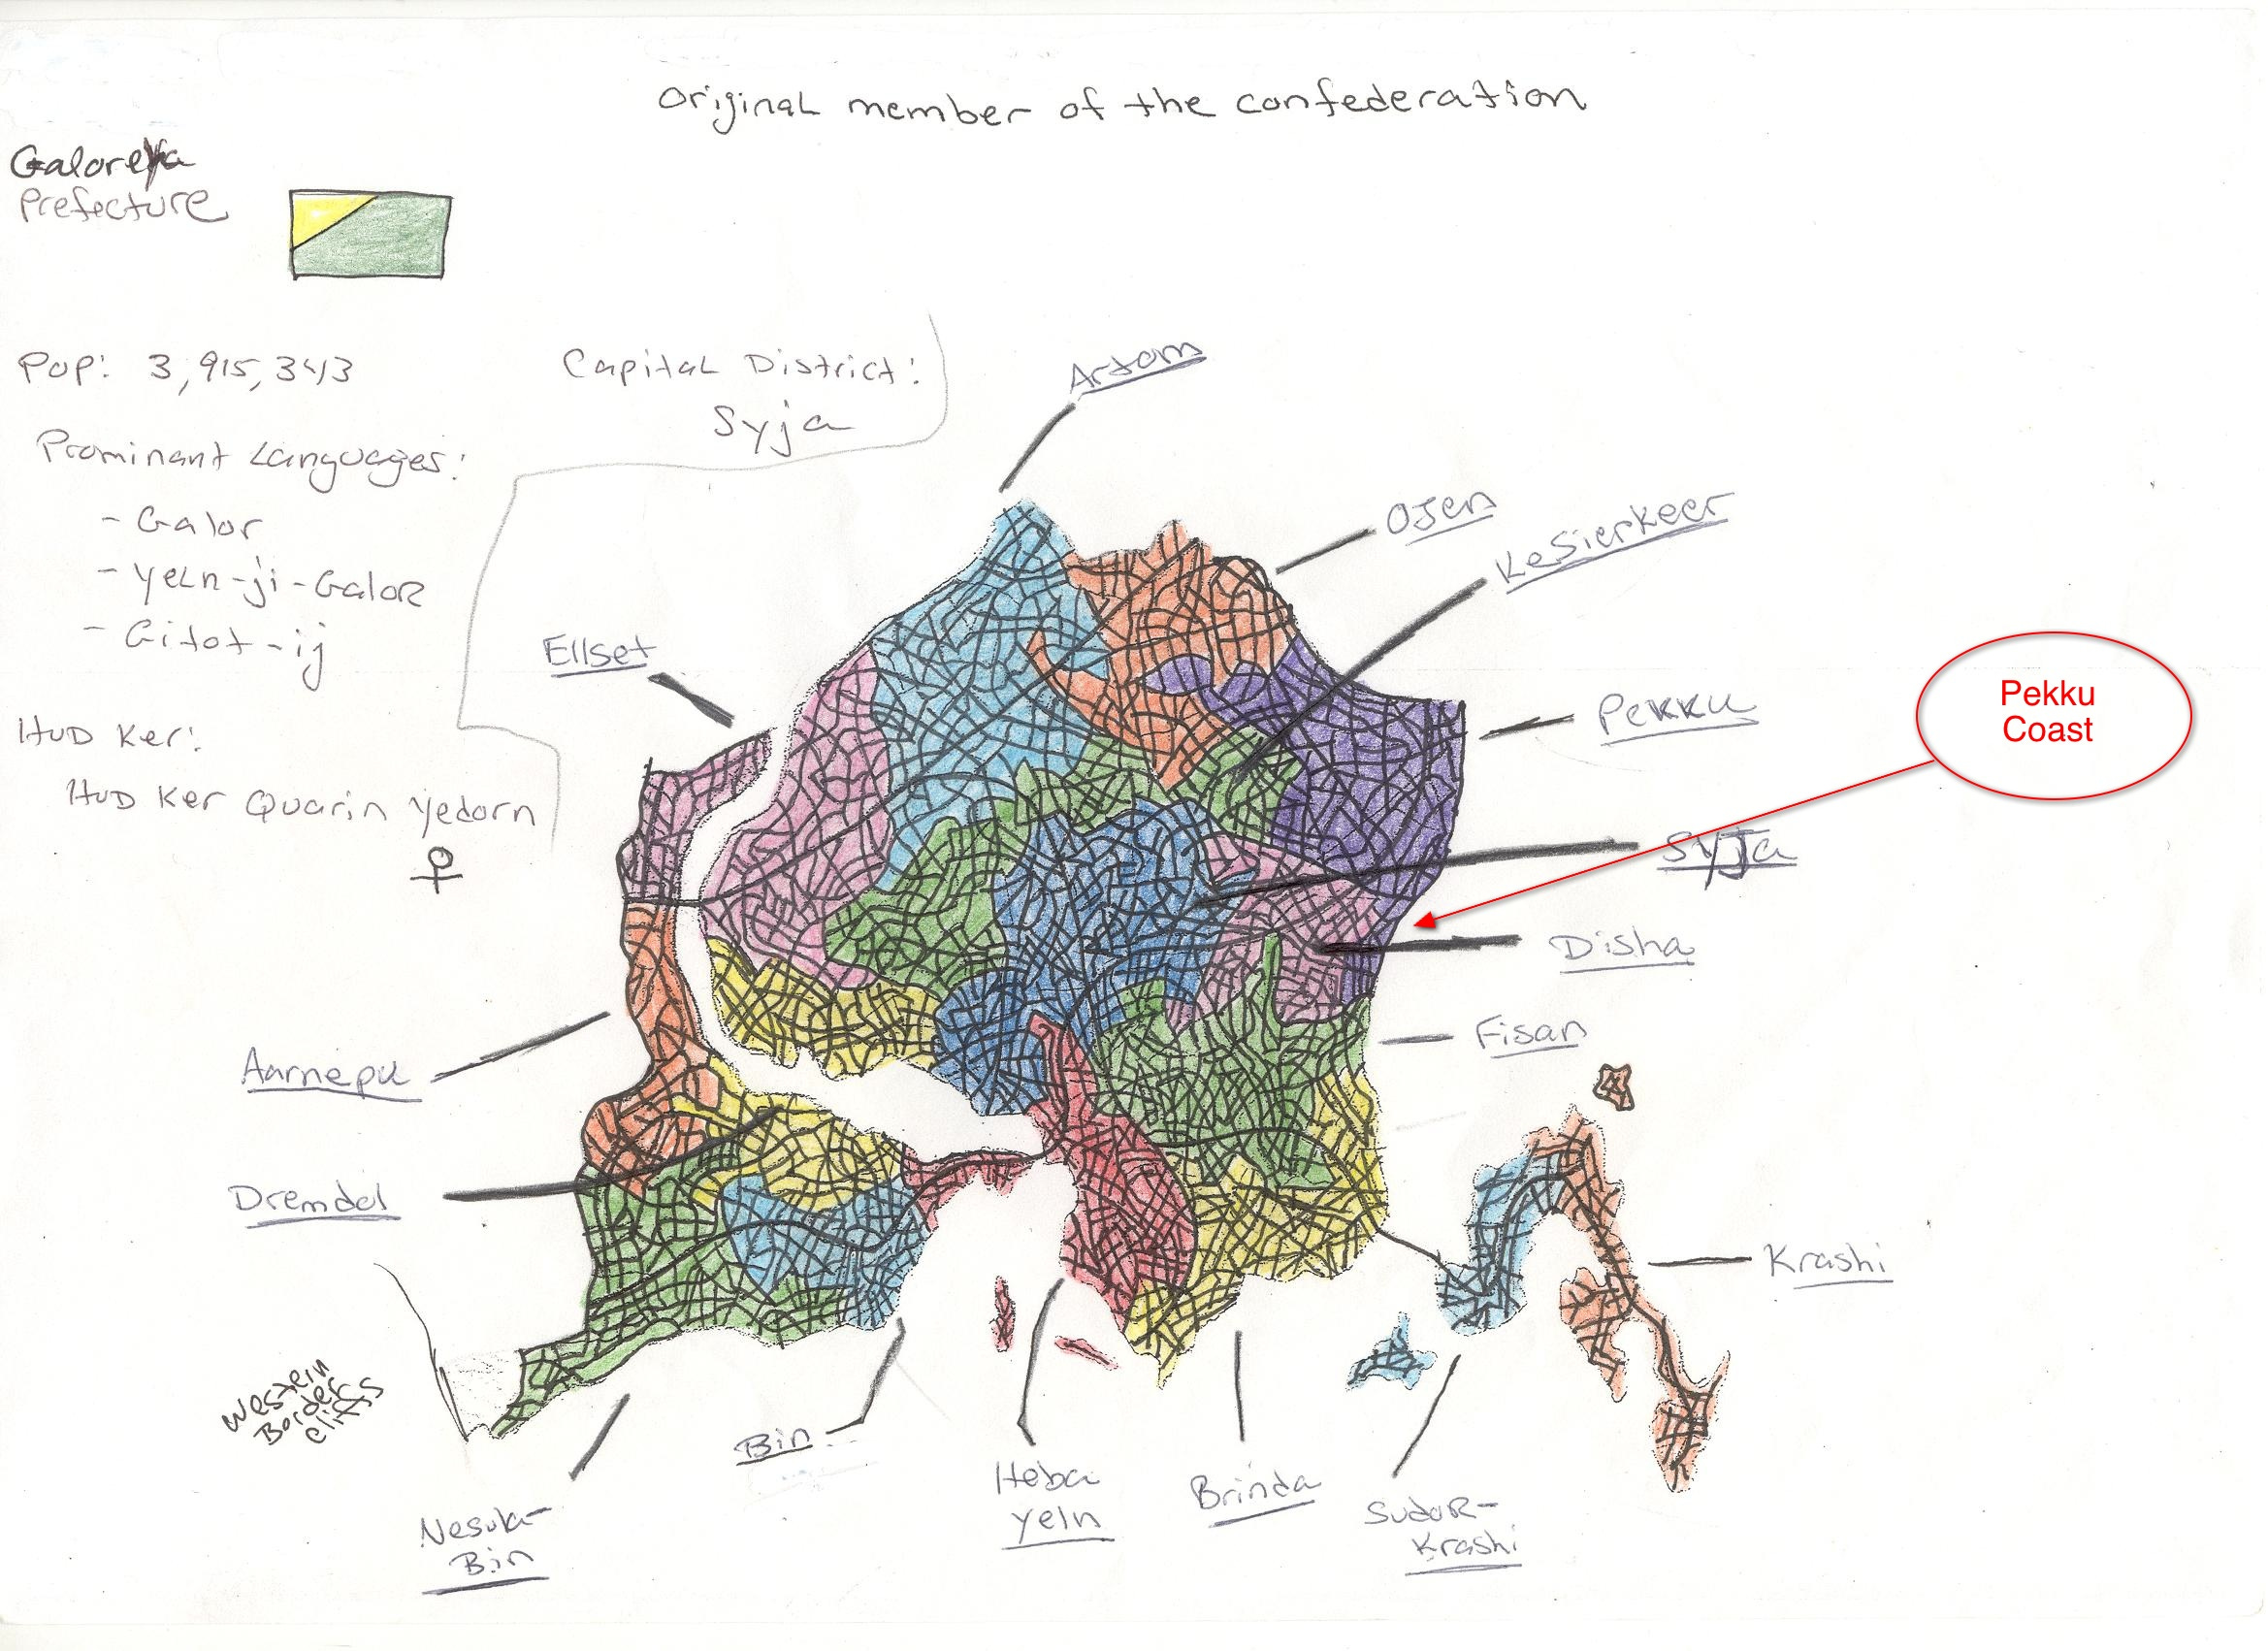 Original member of the confederation
Prefecture
Pop: 3,915,343
Capital District:
Syja
Prominant Languages:
- Galor
- Yeln-ji-Galor
- Gitot-ij
HUD Ker:
HUD Ker Quarin Yedorn
Artom
Ojen
KeSierkeer
Ellset
Pekku
Pekku
Coast
Syja
Disha
Fisan
Aarnepu
Dremdel
Krashi
Western
Border
cliffs
Bin
Heba
Yeln
Brinda
Sudor-
Krashi
Nesula-
Bin